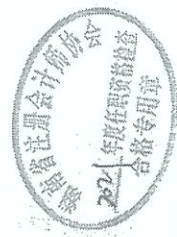 省注册会计师协会
年度任职资格检查
合格专用章